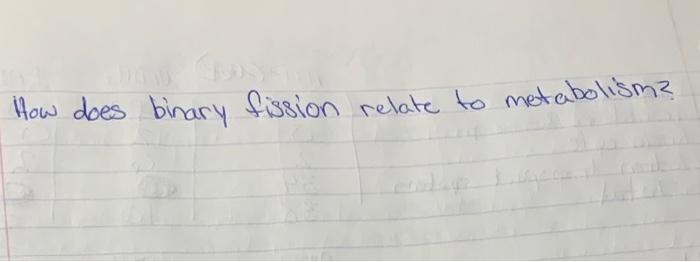 How does binary fission relate to metabolism?